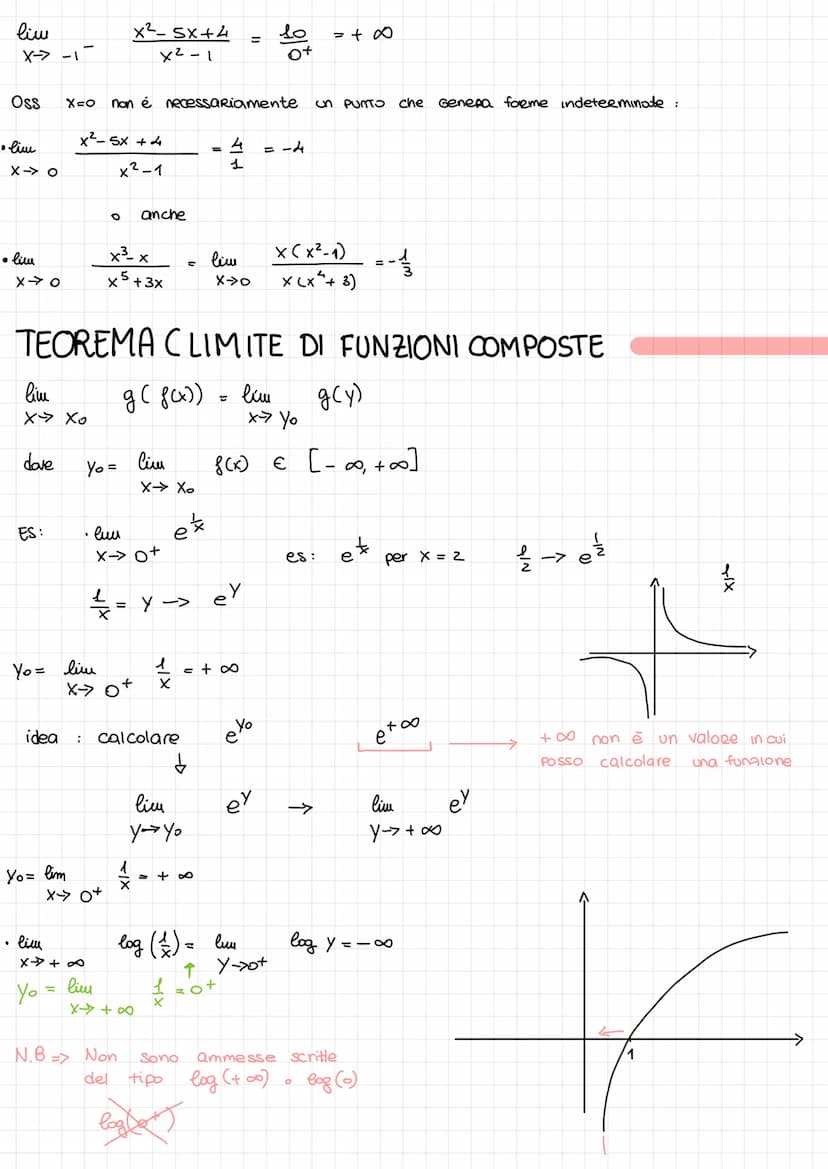 lim x→ -1⁻ (x²- 5x+4)/(x² - 1) = 10/0⁺ = + ∞
OSS x=0 non é necessariamente un punto che genera forme indeterminate :
• lim x→ 0 (x²- 5x +4)/(x² -1) = 4/1 = -4
o anche
• lim x→ 0 (x³- x)/(x⁵+3x) = lim x→0 x(x²-1)/x(x⁴+ 3) = -1/3
TEOREMA C LIMITE DI FUNZIONI COMPOSTE
lim x→ x₀ g( f(x)) = lim x→ y₀ g(y)
dove y₀ = lim x→ x₀ f(x) ∈ [- ∞, +∞]
ES: · lim x→ 0⁺ e^(1/x) es: e^(1/x) per x = 2 1/2 → e^(1/2)
1/x = y → e^y 1/x
y₀ = lim x→ 0⁺ 1/x = + ∞
idea : calcolare e^(y₀) e^(+∞) → +∞ non é un valore in cui
posso calcolare una funzione
↓
lim y→y₀ e^y → lim y→ + ∞ e^y
y₀ = lim x→ 0⁺ 1/x = + ∞
• lim x→ + ∞ log (1/x) = lim y→0⁺ log y = -∞
↑
y₀ = lim x→ + ∞ 1/x = 0⁺
1
N.B => Non sono ammesse scritte
del tipo log (+ ∞) o log (0)
log(0⁺)